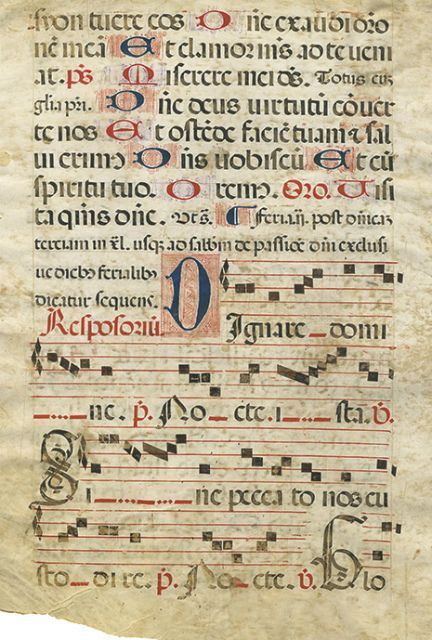 syon tuere eos Dñe exaudi oro
nē meā Et clamor m̄s ad te veni
at. p̄s Miserere mei ds̄. Totus cū
gl̄ia pri. Dñe deus virtutū cōver
te nos Et ostēde faciē tuam & sal
vi erimꝰ Dñs vobiscū Et cū
spiritu tuo. Oremꝰ. Oro. Uisi
ta qm̄s dñe. ut s̄. feria ii. post dn̄icā
terciam in xl. usqꝫ ad sabbm de passiōe dñi exclusi
ve diebꝰ ferialibꝰ
dicatur sequens.
Resposoriū Dignare domi
ne. p̄. Nocte ista. v̄.
Di ne peccato nos cu
stodire. p̄. Nocte. v̄. Glo